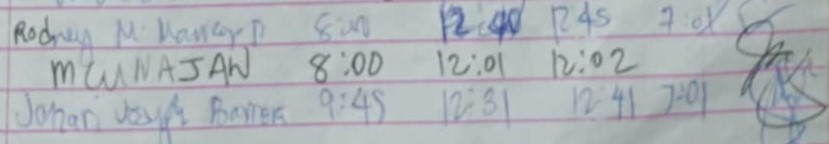 Rodney M. 8:00 12:40 12 45 7:01
MCUNAJAN 8:00 12:01 12:02
Johari Barrera 9:45 12:31 12:41 7:01